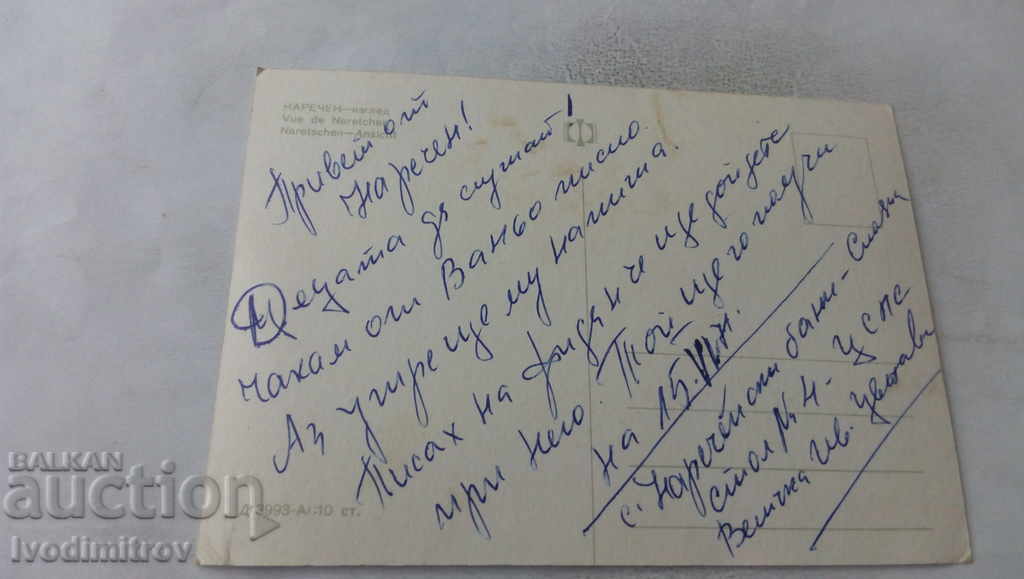 НАРЕЧЕН—изглед
Vue de Naretchen
Naretschen—Ansicht
Привет от
Наречен!
Децата да слушат!
чакам от Ваньо писмо.
Аз утре ще му напиша.
Писах на че ще дойдете
при него. Той ще го получи
на 15.
с. Наречёнски бани-
стол № 4 - ЦСПС
Величка Ив. Цветкова
Д 3993-А/:10 ст.
BALKAN
auction
Ivodimitrov